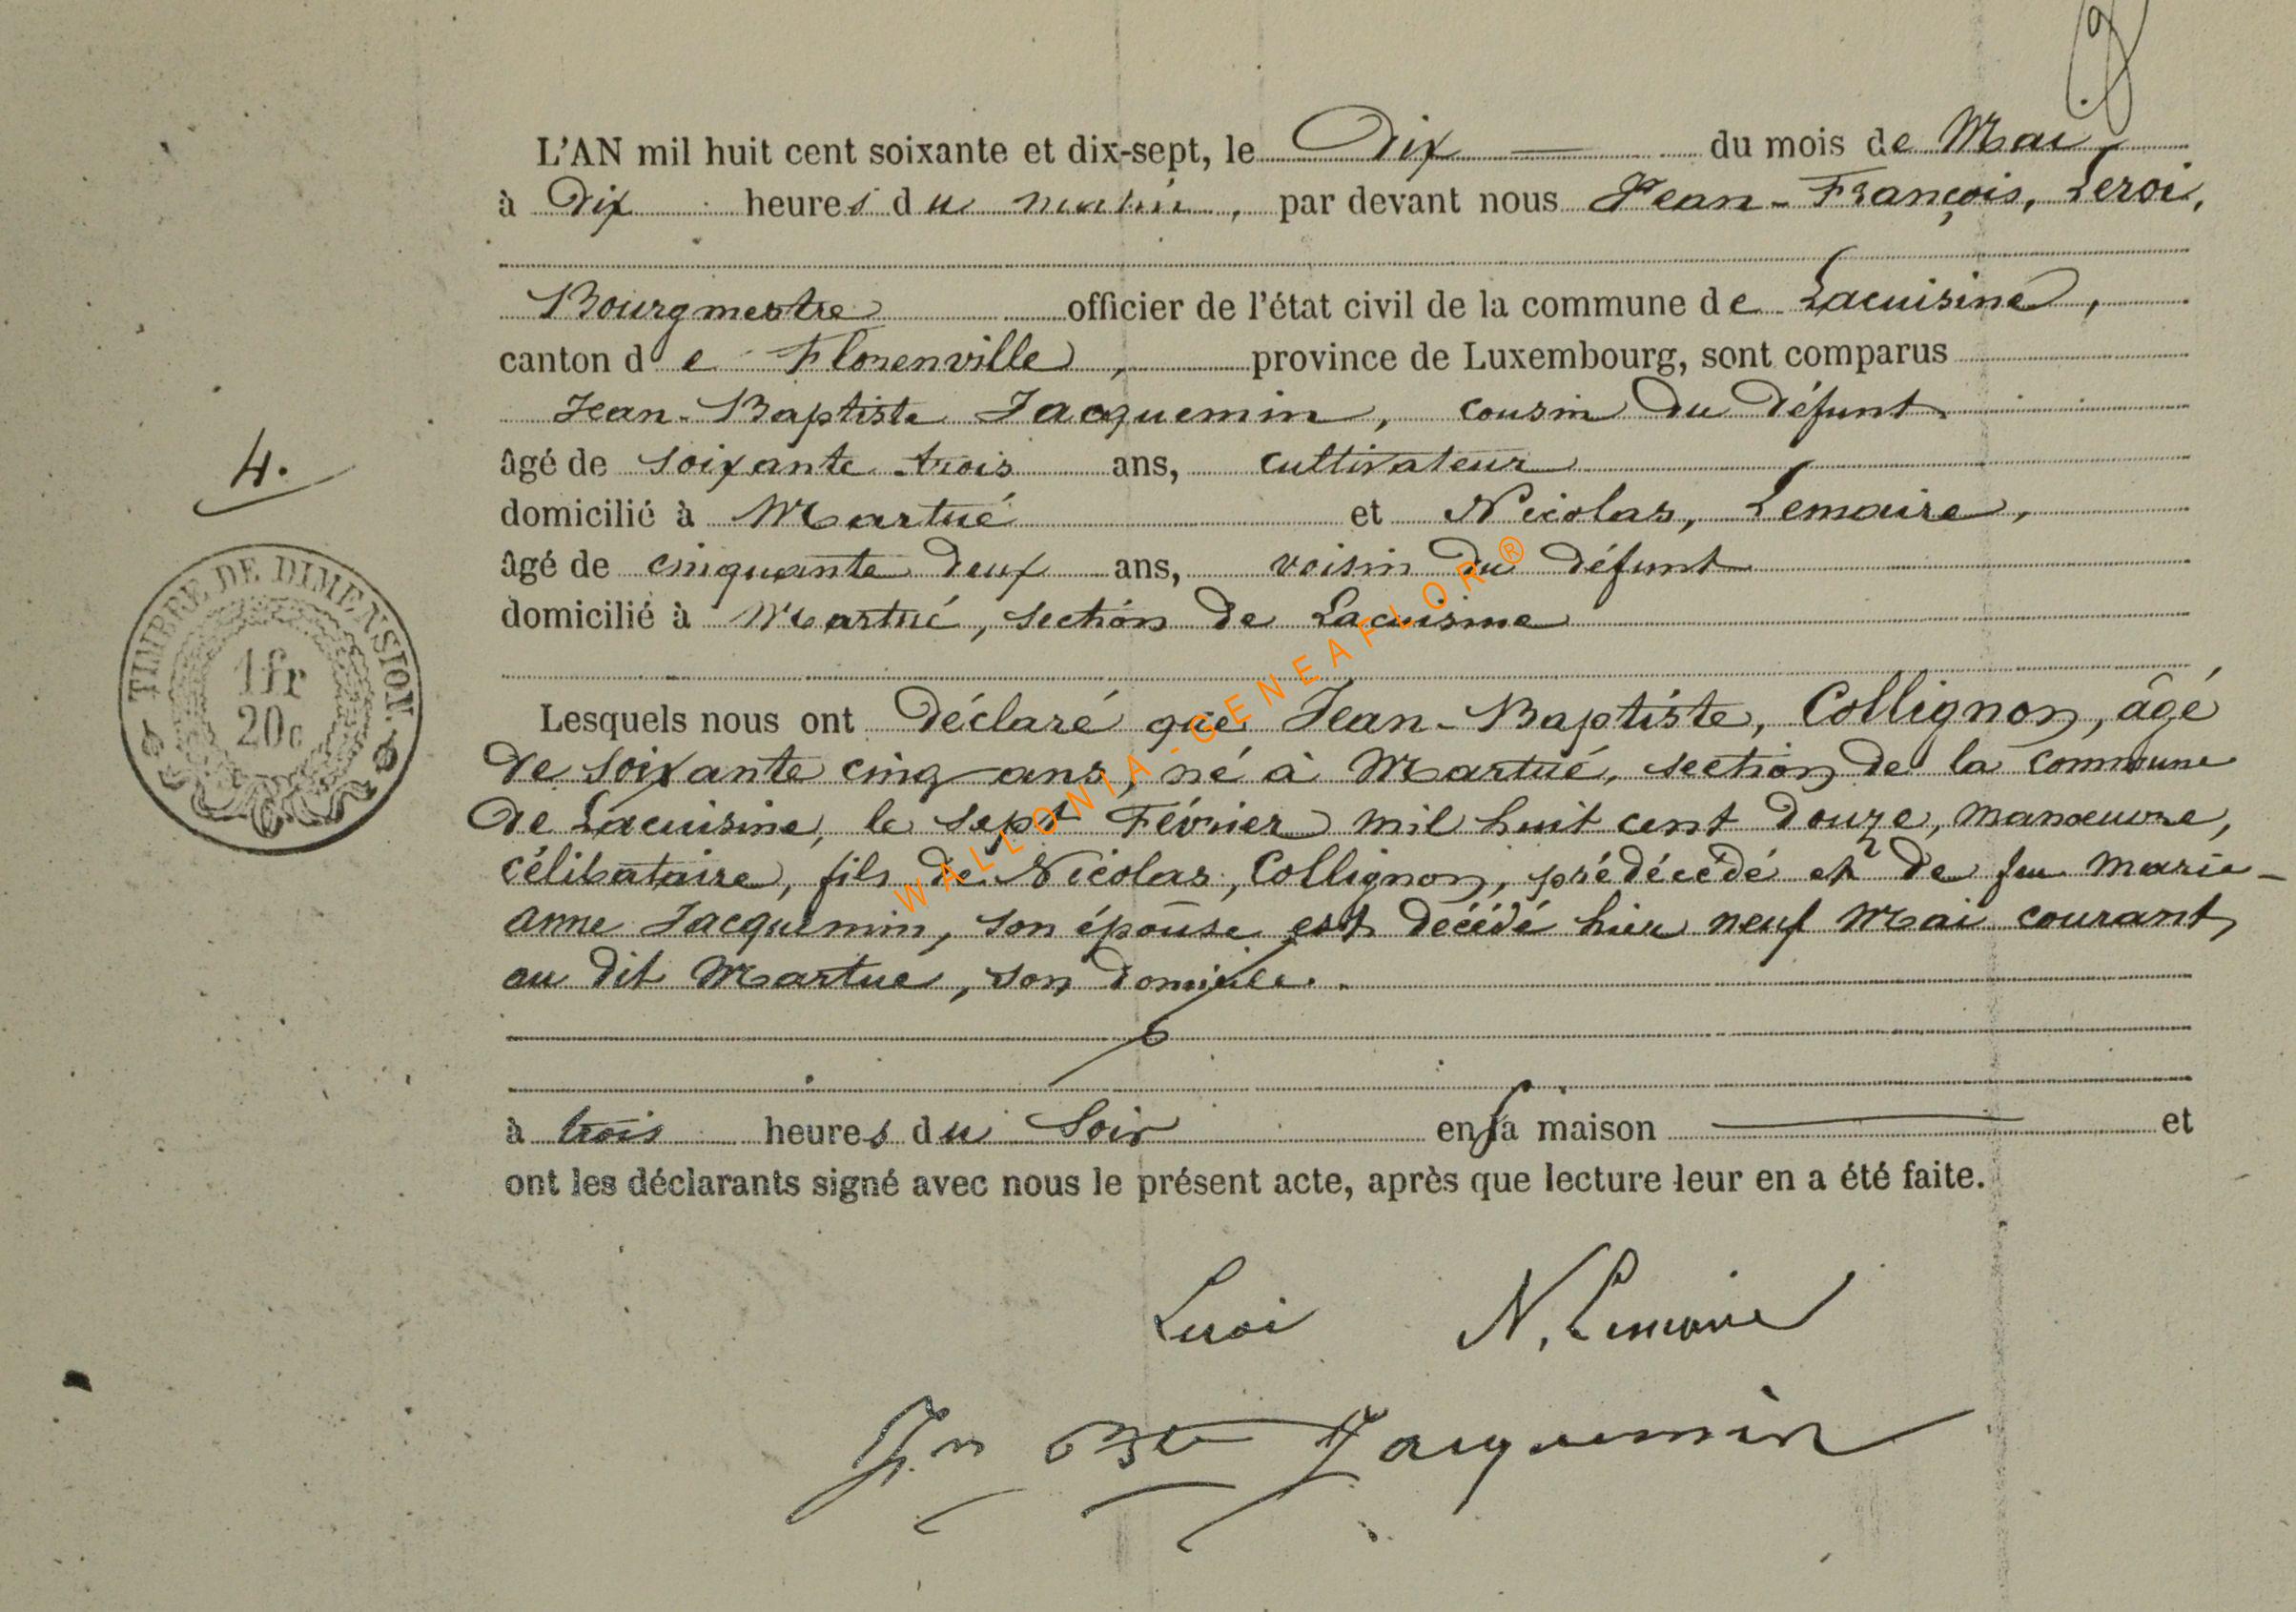 L'AN mil huit cent soixante et dix-sept, le Dix du mois de Mai
à Dix heures du matin, par devant nous Jean-François, Leroi,
Bourgmestre officier de l'état civil de la commune de Lacuisine,
canton de Florenville, province de Luxembourg, sont comparus
Jean-Baptiste Jacquemin, cousin du défunt
4.
âgé de soixante trois ans, cultivateur
domicilié à Martué et Nicolas, Lemaire,
âgé de cinquante deux ans, voisin du défunt
domicilié à Martué, section de Lacuisine
TIMBRE DE DIMENSION.
1fr
20c
Lesquels nous ont déclaré que Jean-Baptiste, Collignon, âgé
de soixante cinq ans, né à Martué, section de la commune
de Lacuisine, le sept Février mil huit cent douze, manœuvre,
célibataire, fils de Nicolas, Collignon, prédécédé et de feu Marie-
anne Jacquemin, son épouse est décédé hier neuf Mai courant,
au dit Martué, son domicile.
à trois heures du Soir en sa maison et
ont les déclarants signé avec nous le présent acte, après que lecture leur en a été faite.
Leroi N. Lemaire
Jn Bte Jacquemin
WALLONIA-GENEAFLOR®